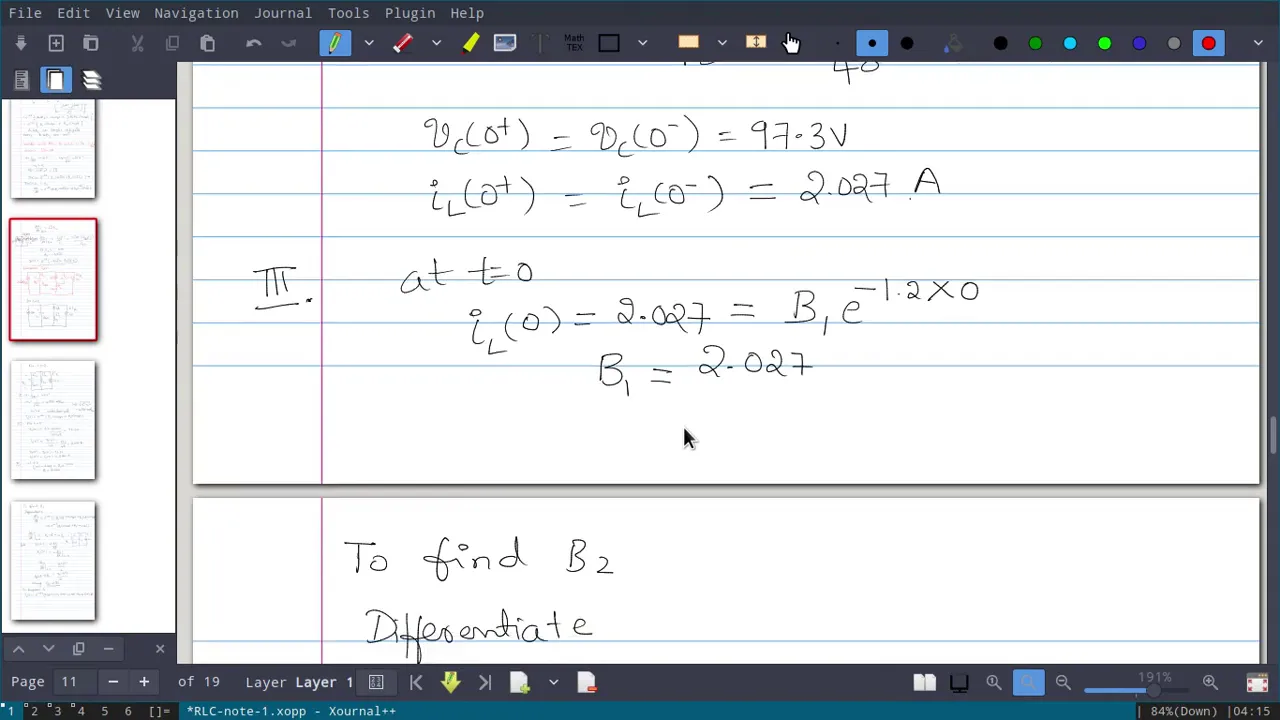 File Edit View Navigation Journal Tools Plugin Help
Math TEX
40
v_C(0⁺) = v_C(0⁻) = 97.3V
i_L(0⁺) = i_L(0⁻) = 2.027 A
III. at t=0
i_L(0) = 2.027 = B₁ e^{-1.2×0}
B₁ = 2.027
To find B₂
Differentiate
Page 11 of 19 Layer Layer 1 191%
1 2 3 4 5 6 []= *RLC-note-1.xopp - Xournal++ 84%(Down) 04:15